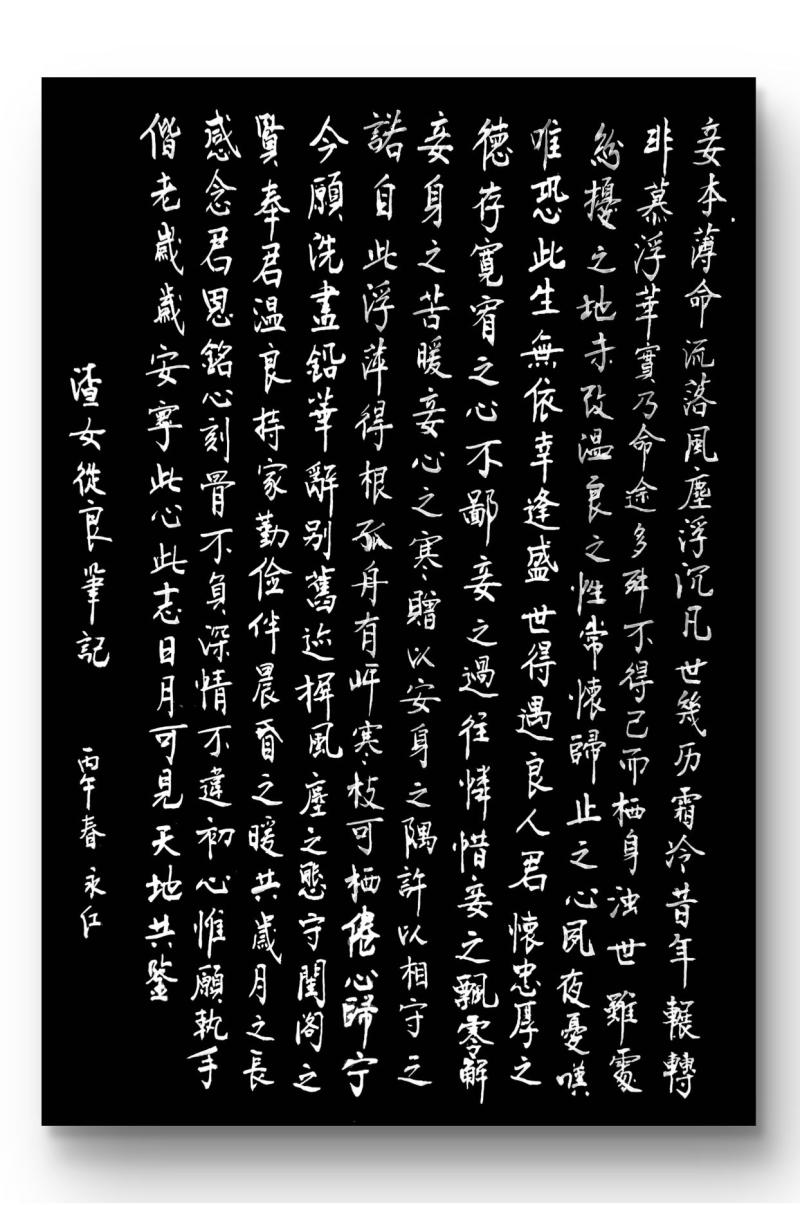 妾本薄命流落風塵浮沉凡世幾历霜冷昔年輾轉
非慕浮華實乃命途多舛不得已而栖身浊世雖處
紛擾之地未改温良之性常懷歸止之心夙夜憂嘆
唯恐此生無依幸逢盛世得遇良人君懷忠厚之
德存寬宥之心不鄙妾之過往憐惜妾之飄零解
妾身之苦暖妾心之寒贈以安身之隅許以相守之
諾自此浮萍得根孤舟有岸寒枝可栖倦心歸宁
今願洗盡鉛華辭别舊迹摒風塵之態守閨阁之
賢奉君温良持家勤俭伴晨昏之暖共歲月之長
感念君恩銘心刻骨不負深情不違初心惟願執手
偕老歲歲安寧此心此志日月可見天地共鉴
渣女從良筆記 丙午春永仁